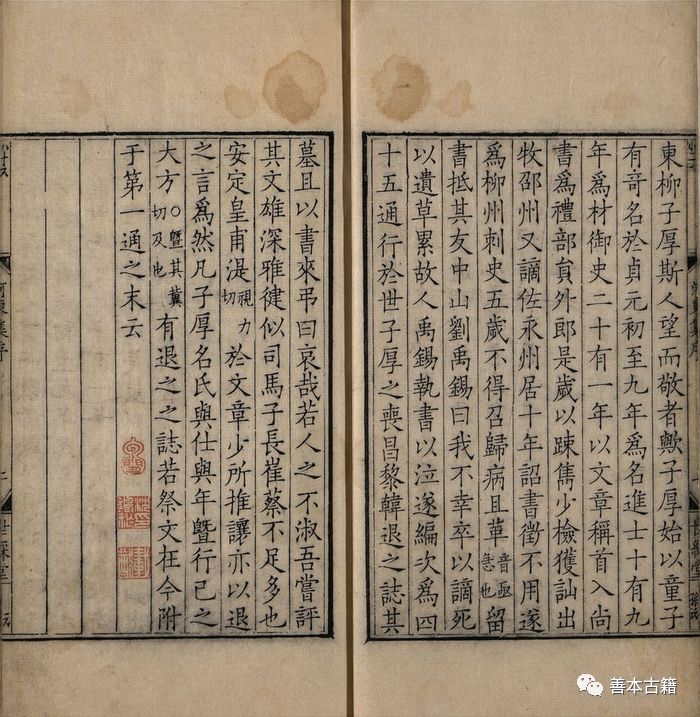 東柳子厚斯人望而敬者歟子厚始以童子
有奇名於貞元初至九年爲名進士十有九
年爲材御史二十有一年以文章稱首入尚
書爲禮部員外郎是歲以踈雋少檢獲訕出
牧邵州又謫佐永州居十年詔書徵不用遂
爲柳州刺史五歲不得召歸病且革音亟急也留
書抵其友中山劉禹錫曰我不幸卒以謫死
以遺草累故人禹錫執書以泣遂編次爲四
十五通行於世子厚之喪昌黎韓退之誌其
墓且以書來弔曰哀哉若人之不淑吾嘗評
其文雄深雅健似司馬子長崔蔡不足多也
安定皇甫湜視力切於文章少所推讓亦以退
之言爲然凡子厚名氏與仕與年曁行己之
大方○曁其冀切及也有退之之誌若祭文在今附
于第一通之末云
河東集序
世綵堂
善本古籍